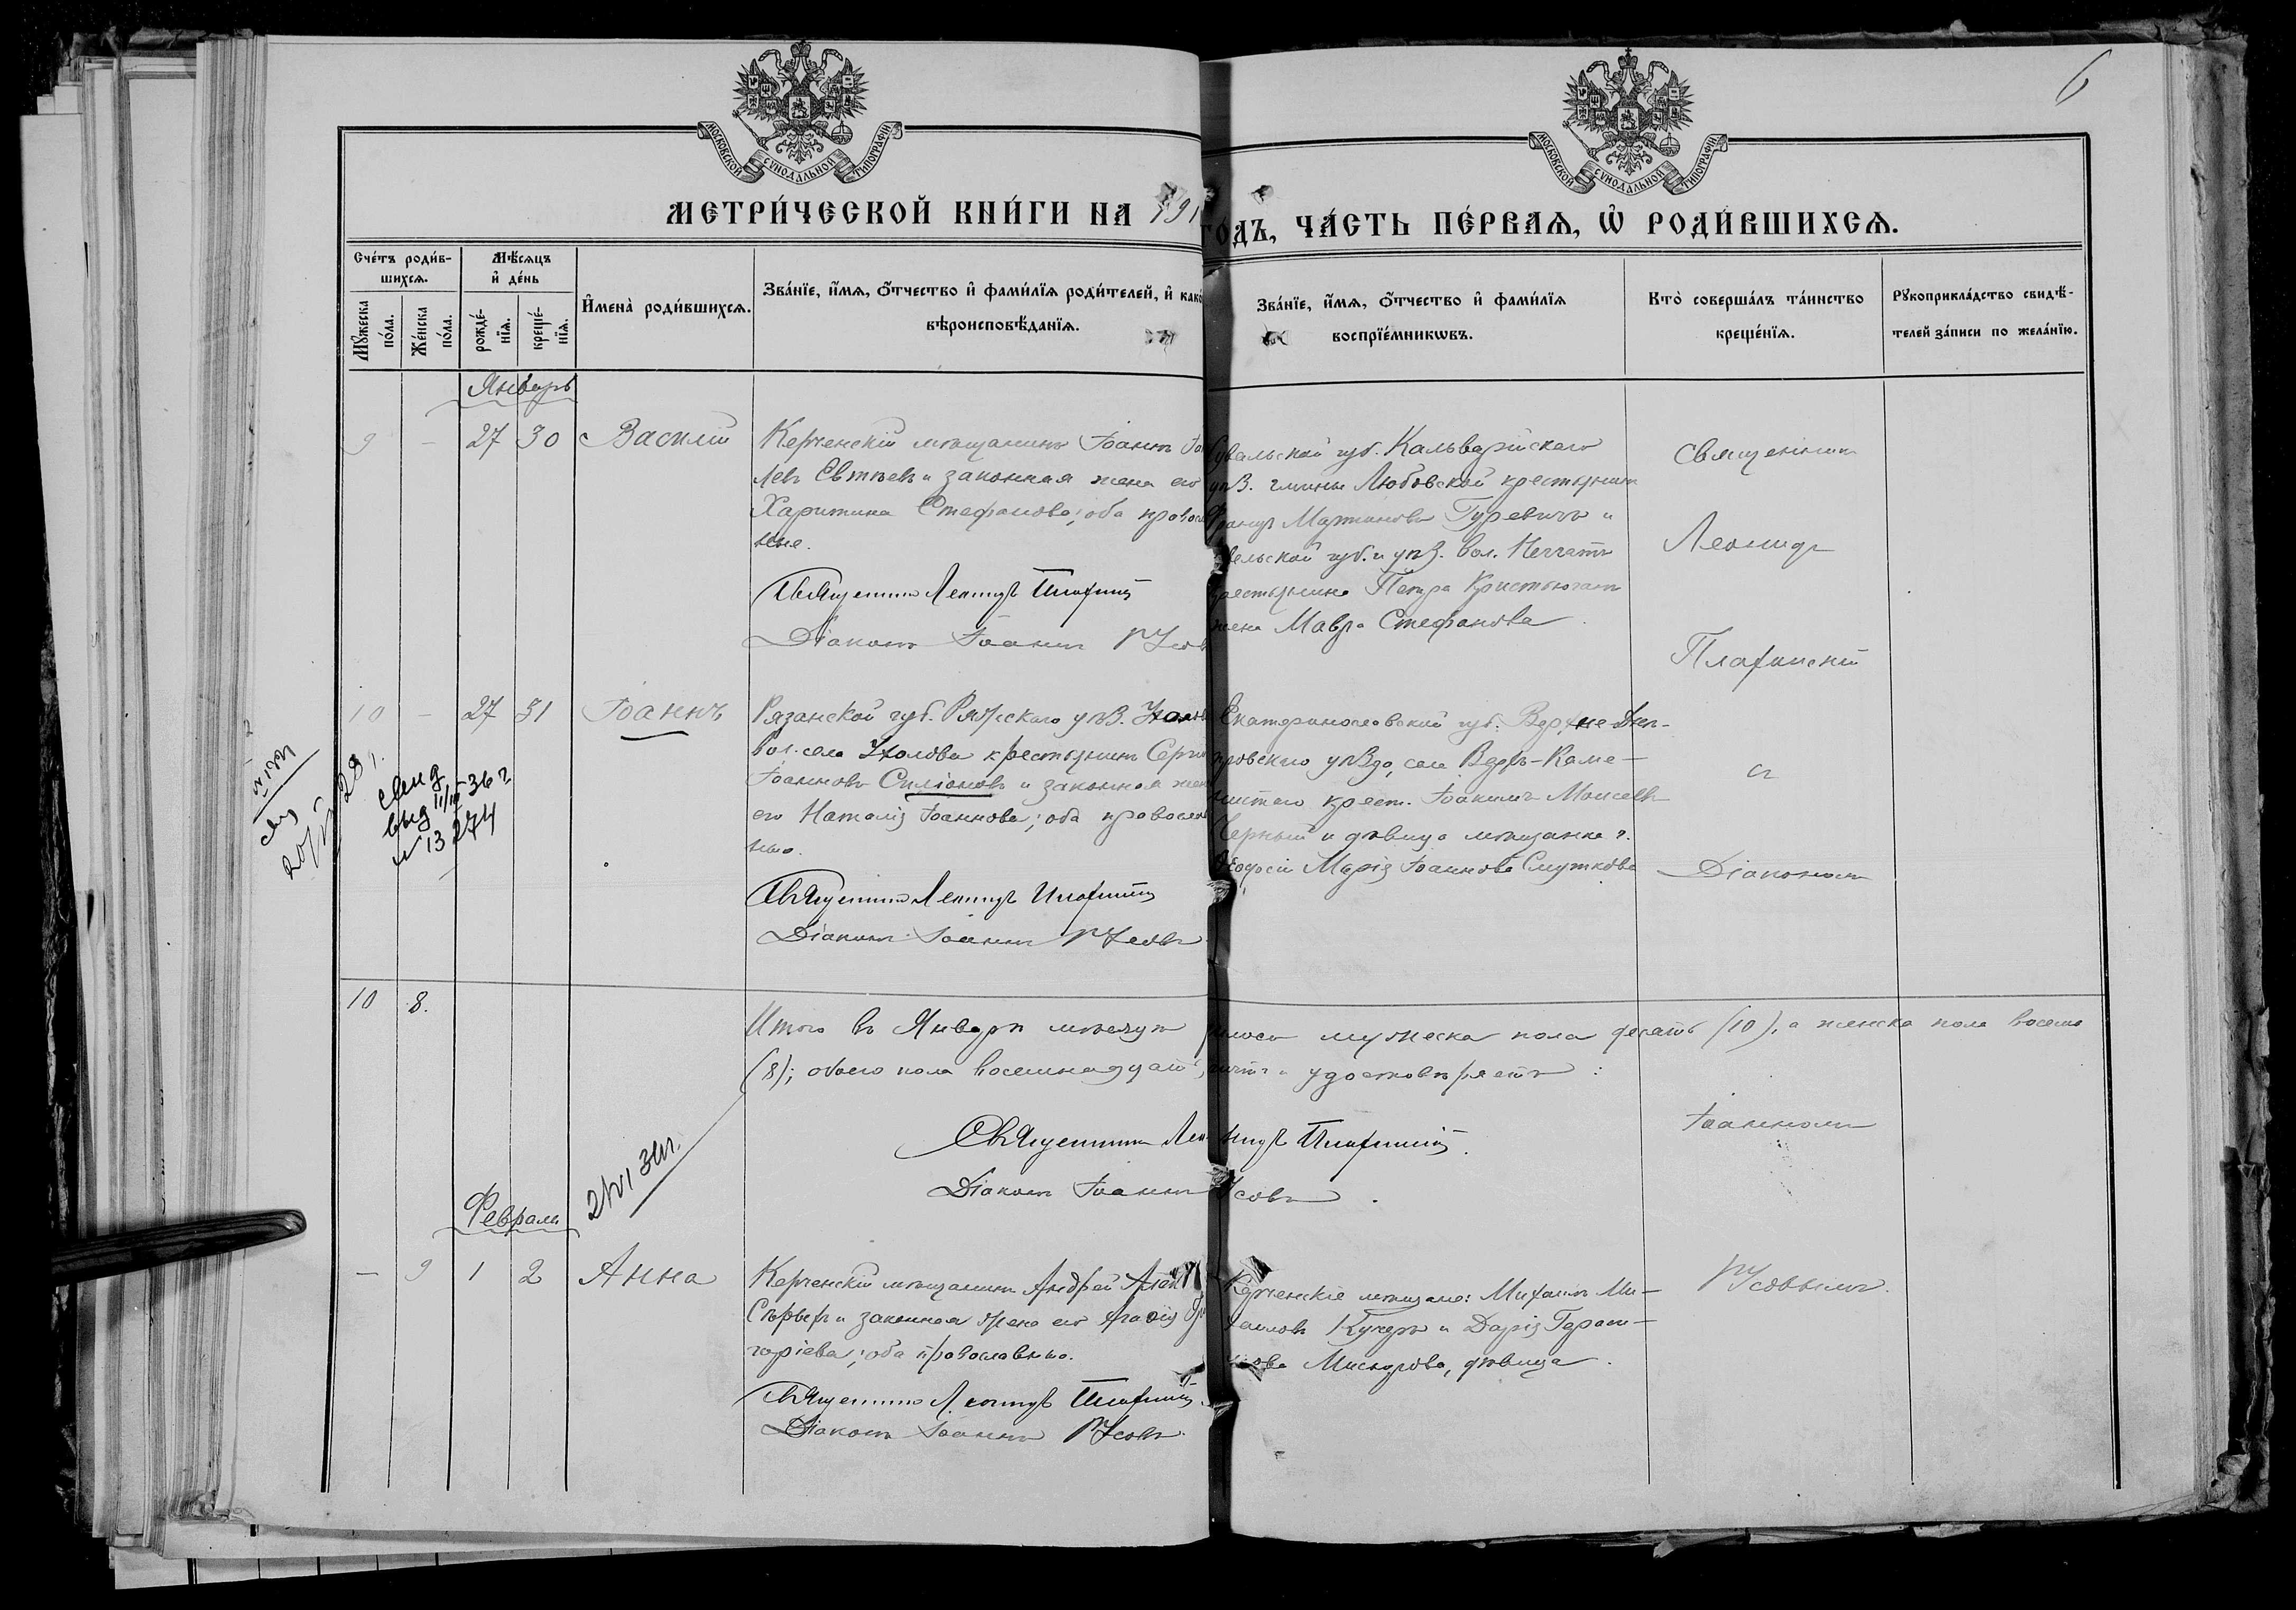 6
МОСКОВСКОЙ СѴНОДАЛЬНОЙ ТИПОГРАФІИ
МОСКОВСКОЙ СѴНОДАЛЬНОЙ ТИПОГРАФІИ
МЕТРИ́ЧЕСКОЙ КНИ́ГИ НА 191
ГОДЪ, ЧА́СТЬ ПЕ́РВАѦ, Ѡ҆ РОДИ́ВШИХСѦ.
Сче́тъ роди́в-
шихсѧ.
Мꙋ́жеска по́ла.
Же́нска по́ла.
Мѣ́сѧцъ
и҆ де́нь
рожде́-
нїѧ.
креще́-
нїѧ.
И҆мена̀ роди́вшихсѧ.
Зва́нїе, и҆́мѧ, ѻ҆́тчество и҆ фами́лїѧ роди́телей, и҆ како
вѣроисповѣ́данїѧ.
Зва́нїе, и҆́мѧ, ѻ҆́тчество и҆ фами́лїѧ
воспрїе́мникѡвъ.
Кто̀ соверша́лъ та́инство
креще́нїѧ.
Рꙋкоприкла́дство свидѣ́-
телей за́писи по жела́нїю.
Январь
9 - 27 30 Василій
Керченскій мѣщанинъ Іоаннъ
левъ Евтѣевъ и законная жена его
Харитина Стефанова; оба правосл
ные.
Священникъ Леонидъ Плафинскій
Діаконъ Іоаннъ Усов
Сувальской губ. Кальварійскаго
уѣз. гмины Любовской крестьянинъ
Францъ Мартиновъ Гуревичъ и
губ. и уѣз. вол.
крестьянина Петра
жена Мавра Стефанова.
Священникъ
Леонидъ
Плафинскій
10 - 27 31 Іоаннъ
Рязанской губ. Ряжскаго уѣз. Ухолов
вол. села Ухолова крестьянинъ Серг
Іоанновъ Силіановъ и законная жен
его Наталія Іоаннова; оба православ
ные.
Священникъ Леонидъ Плафинскій
Діаконъ Іоаннъ Усовъ
Екатеринославской губ. Верхне-Днѣп-
ровскаго уѣзда, села Водяъ-Каме-
нистаго крест. Іоакимъ Моисеевъ
Черный и дѣвица мѣщанка г.
Ѳеодосіи Марія Іоаннова Смуткова
съ
Діакономъ
Іоанномъ
Усовымъ.
свид
выд 11/III-36 г
№13274
10 8.
Итого въ Январѣ мѣсяцѣ
лось мужеска пола десять (10), а женска пола восемь
(8); обоего пола восемнадцать,
что и удостовѣряетъ:
Священникъ Леонидъ Плафинскій.
Діаконъ Іоаннъ Усовъ.
Февраль
- 9 1 2 Анна
Керченскій мѣщанинъ Андрей
и законная жена его
горіева; оба православные.
Священникъ Леонидъ Плафинскій.
Діаконъ Іоаннъ Усовъ.
Керченскіе мѣщане: Михаилъ Ми-
хаиловъ Кучеръ и Дарія Гераси-
мова Мисюрова, дѣвица.